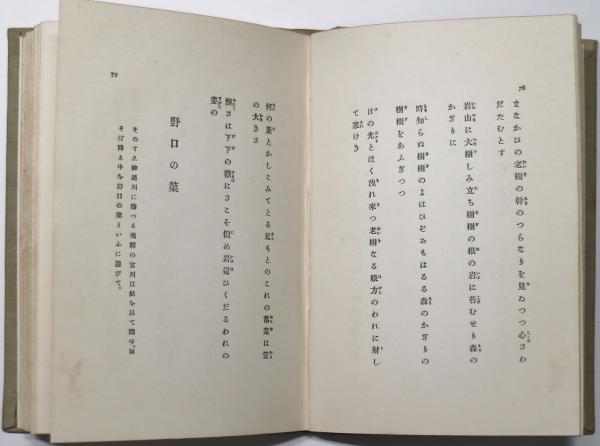 78
まなかひの老樹の幹のつらなりを見ゐつつ心さわ
だたむとす
岩山に大樹しみ立ち樹樹の根の岩に苔むせり森の
かぎりに
時知らぬ樹樹のよはひぞおもはるる森のかぎりの
樹樹をあふぎつつ
日の光とほく洩れ来つ老樹なる根方のわれに射し
て寒けき
79
何の葉とかしこみてとる足もとのこれの落葉は笠
の大きさ
醜さは下下の獣にさこそ似め岩這ひくだるわれの
姿の
野口の簗
そのすゑ神通川に落つる飛騨の宮川は鮎を以て聞ゆ、雨
そぼ降る中を野口の簗といふに遊びて。